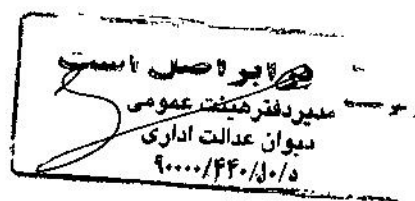 برابر اصل است
مدیر دفتر هیئت عمومی
دیوان عدالت اداری
۹۰۰۰۰/۴۴۰/ل۰/۵